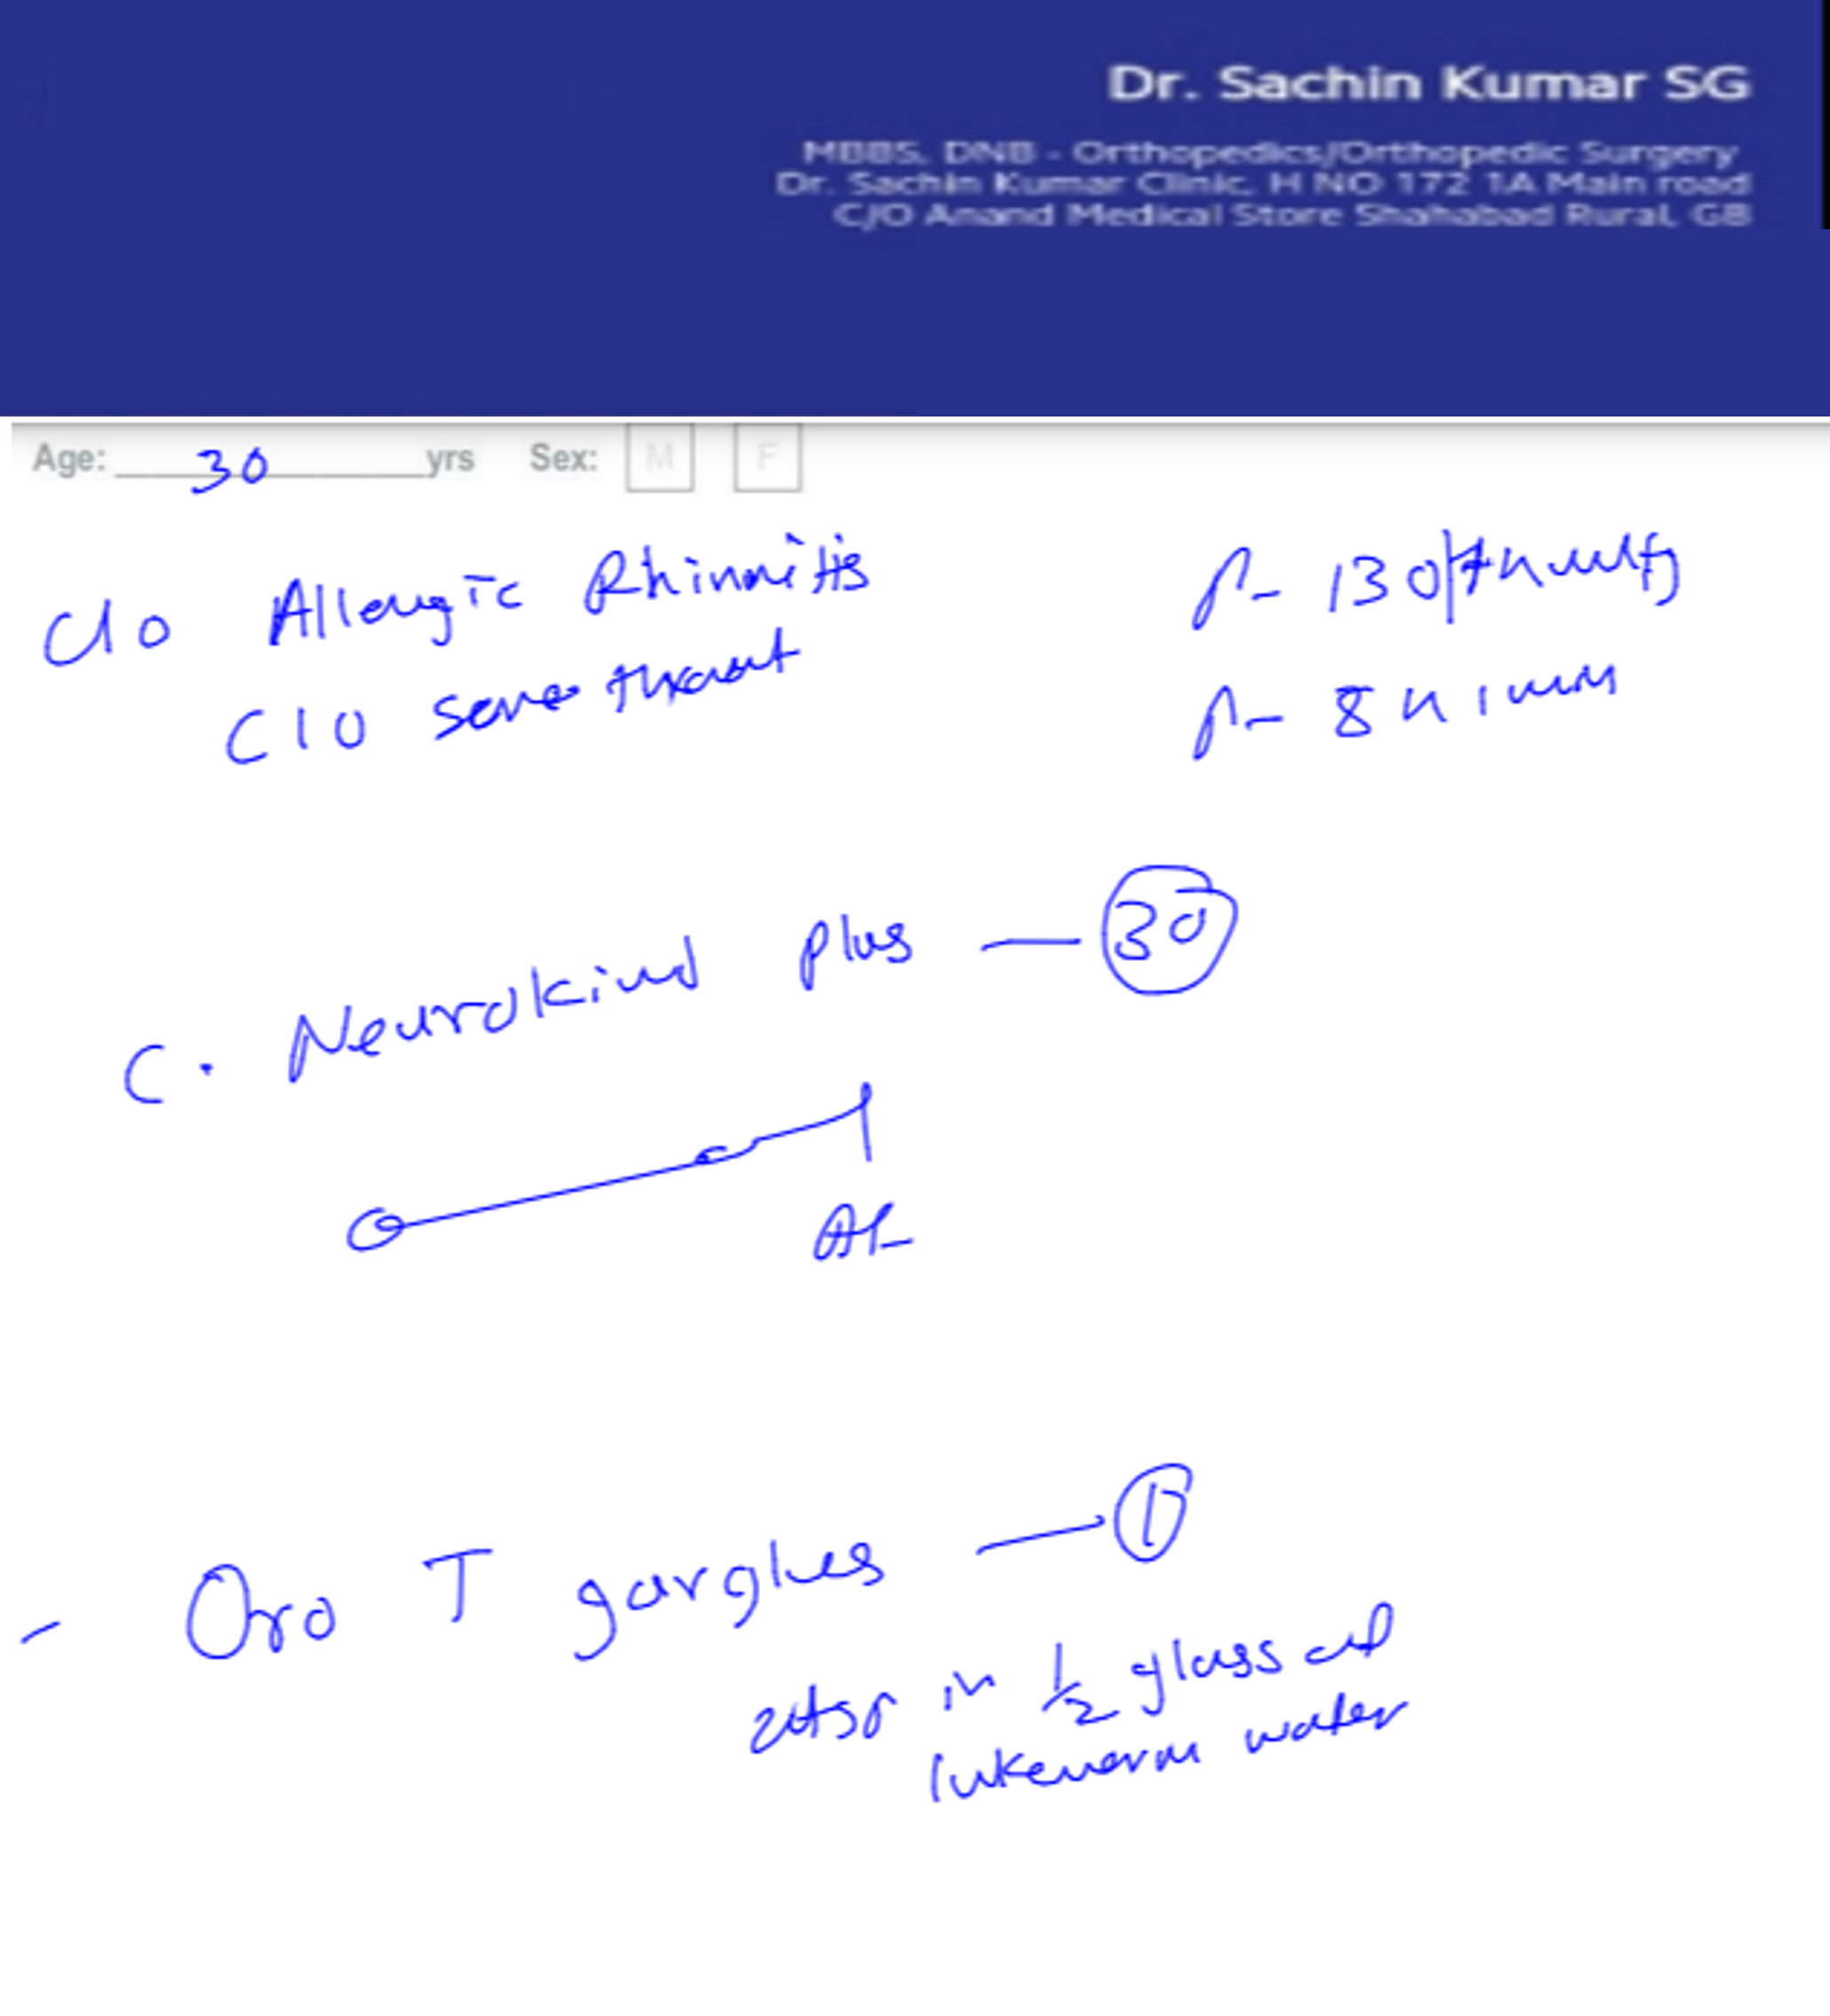 Dr. Sachin Kumar SG
MBBS, DNB - Orthopedics/Orthopedic Surgery
Dr. Sachin Kumar Clinic, H NO 172 1A Main road
C/O Anand Medical Store Shahabad Rural, GB
Age: 30 yrs Sex: M F
C/o Allergic Rhinnitis
C/O sore throat
P- 130/
P- 8
C. Neurokind plus — 30
Oro T gargles — 1
in 1/2 glass of
lukewarm water